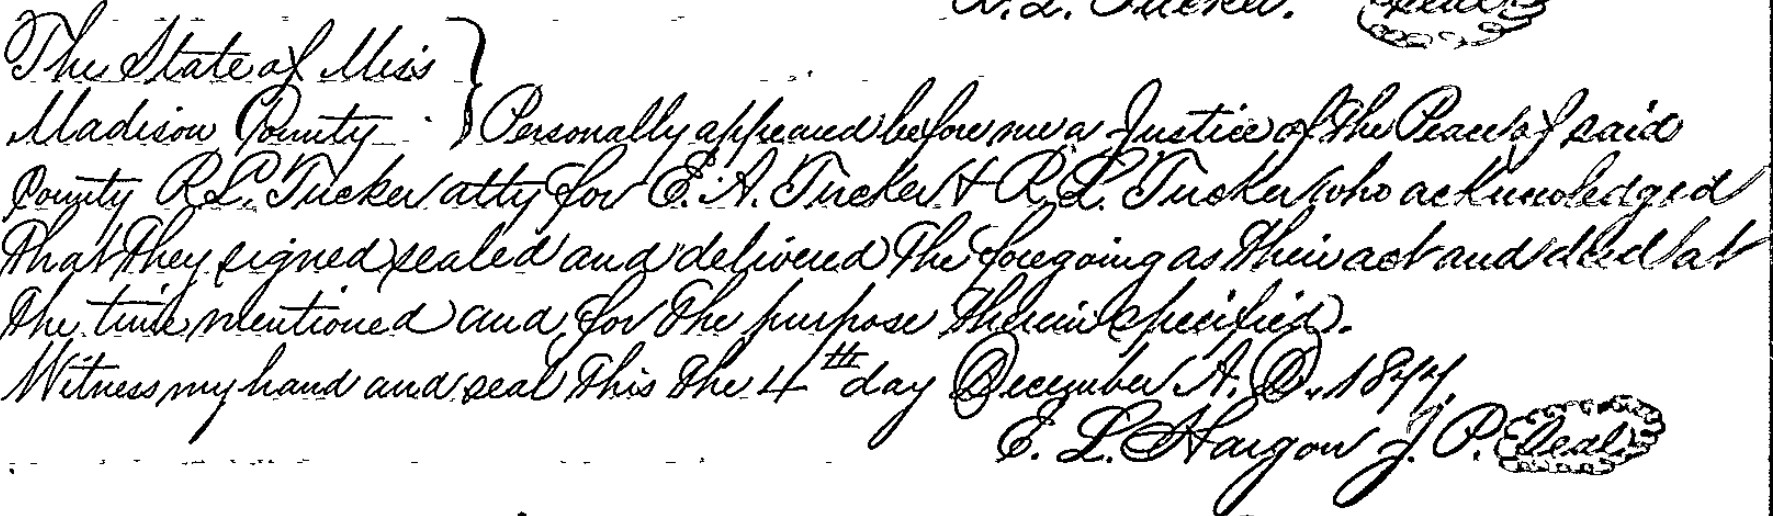 R. L. Tucker. Seal
The State of Miss
Madison County } Personally appeared before me a Justice of the Peace of said
County R. L. Tucker atty for E. A. Tucker & R. L. Tucker who acknowledged
that they signed sealed and delivered the foregoing as their act and deed at
the time mentioned and for the purpose therein specified.
Witness my hand and seal this the 4th day December A. D. 1877.
E. L. Hargon J. P. Seal